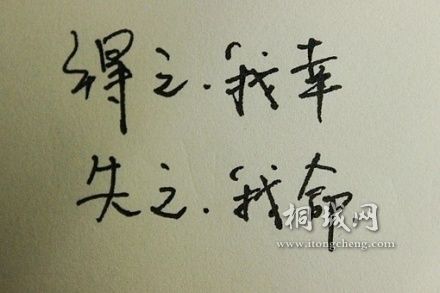 得之.我幸
失之.我命
桐城网
www.itongcheng.com